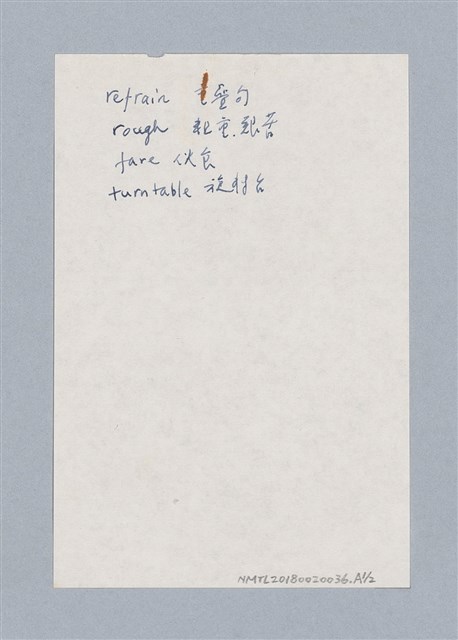 refrain 重疊句
rough 粗重、艱苦
fare 伙食
turntable 旋轉台
NMTL20180020036.A1/2